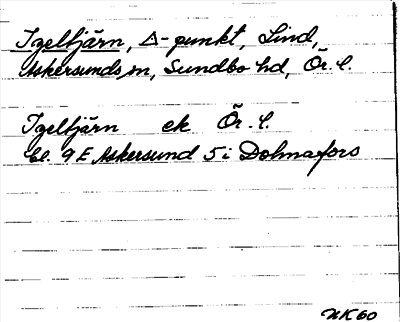 Igeltjärn, △-punkt, Lind,
Askersunds sn, Sundbo hd, Ör. l.
Igeltjärn ek Ör. l.
Bl. 9 E Askersund 5 i Dohnafors
NK 60